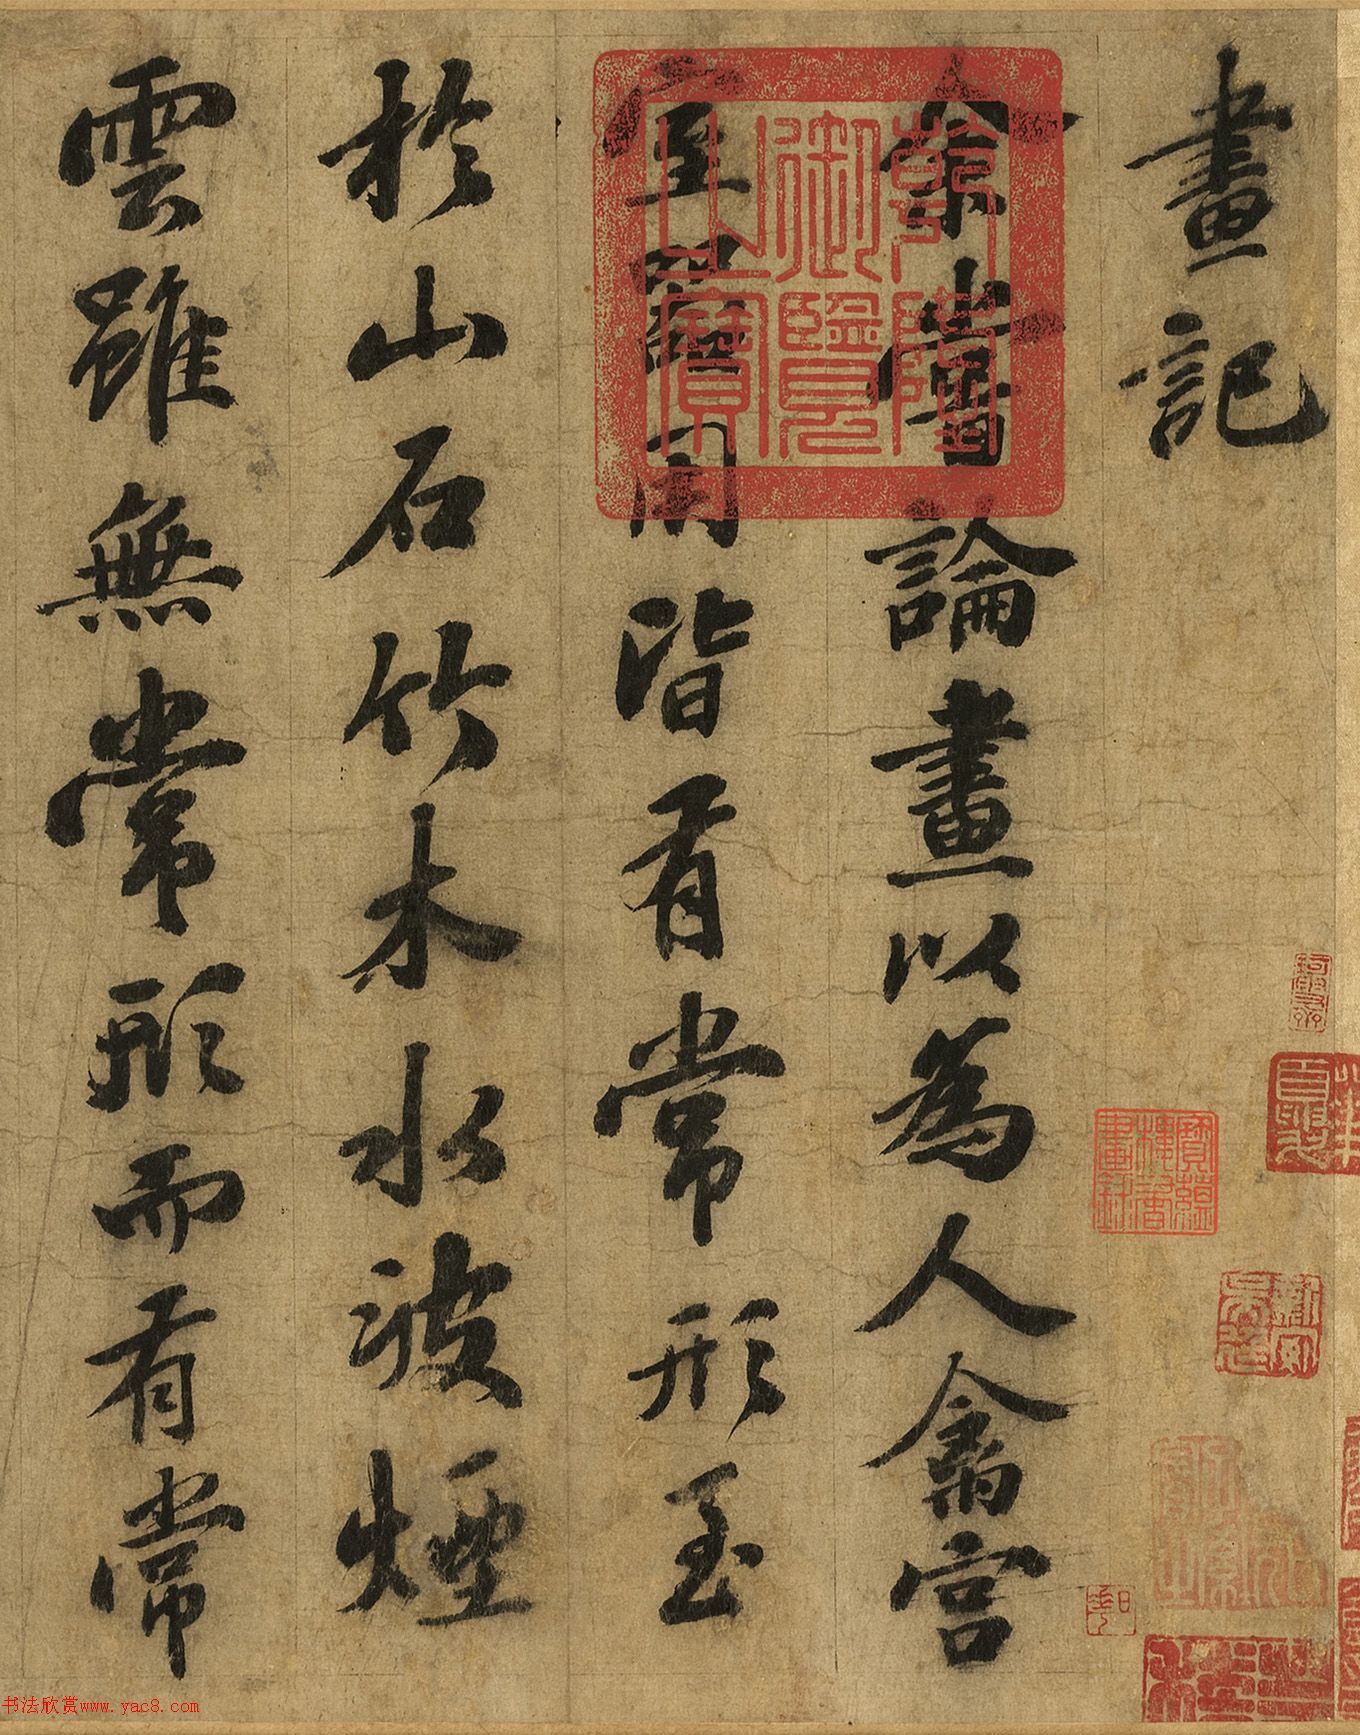 畫記
余嘗論畫以為人禽宮
室器用皆有常形至
於山石竹木水波煙
雲雖無常形而有常
乾隆御覽之寶
书法欣赏www.yac8.com